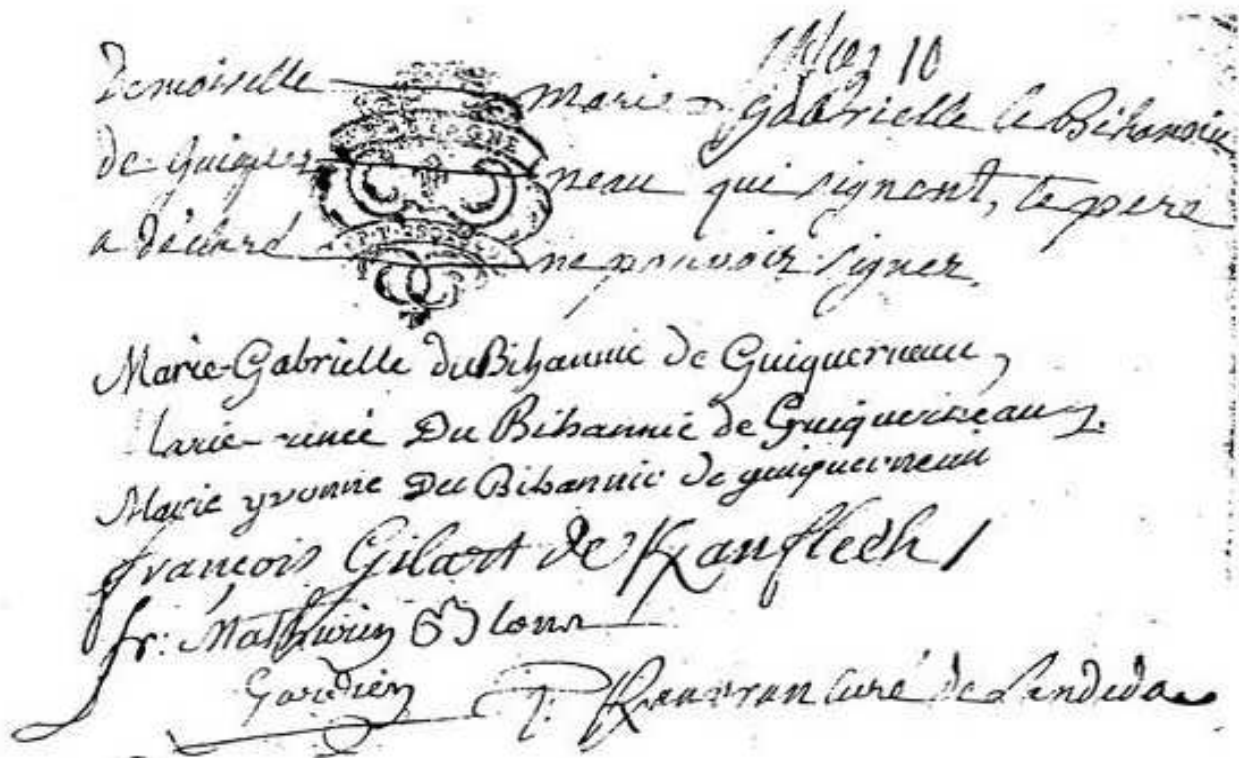 10
demoiselle marie gabrielle le Bihannic
de guiquer neau qui signent, le pere
a déclaré ne pouvoir signer.
Marie-Gabrielle du Bihannic de Guiquerneau,
Marie-renée Du Bihannic de Guiquerneau.
Marie yvonne Du Bihannic de guiquerneau
françois Gilart de Kanflech
fr: Mathurin
Gardien curé de Landeda